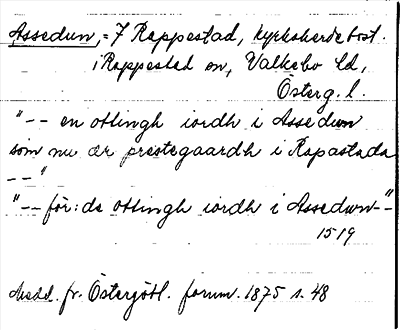 Assedun, = 7 Rappestad, kyrkoherdebost.
i Rappestad sn, Valkebo hd,
Österg. l.
"-- en ottingh iordh i Assedun
som nu ær prestegaardh i Rapastada
--"
"-- för: de ottingh iordh i Assedun --"
1519
Medd. fr. Östergötl. fornm. 1875 s. 48